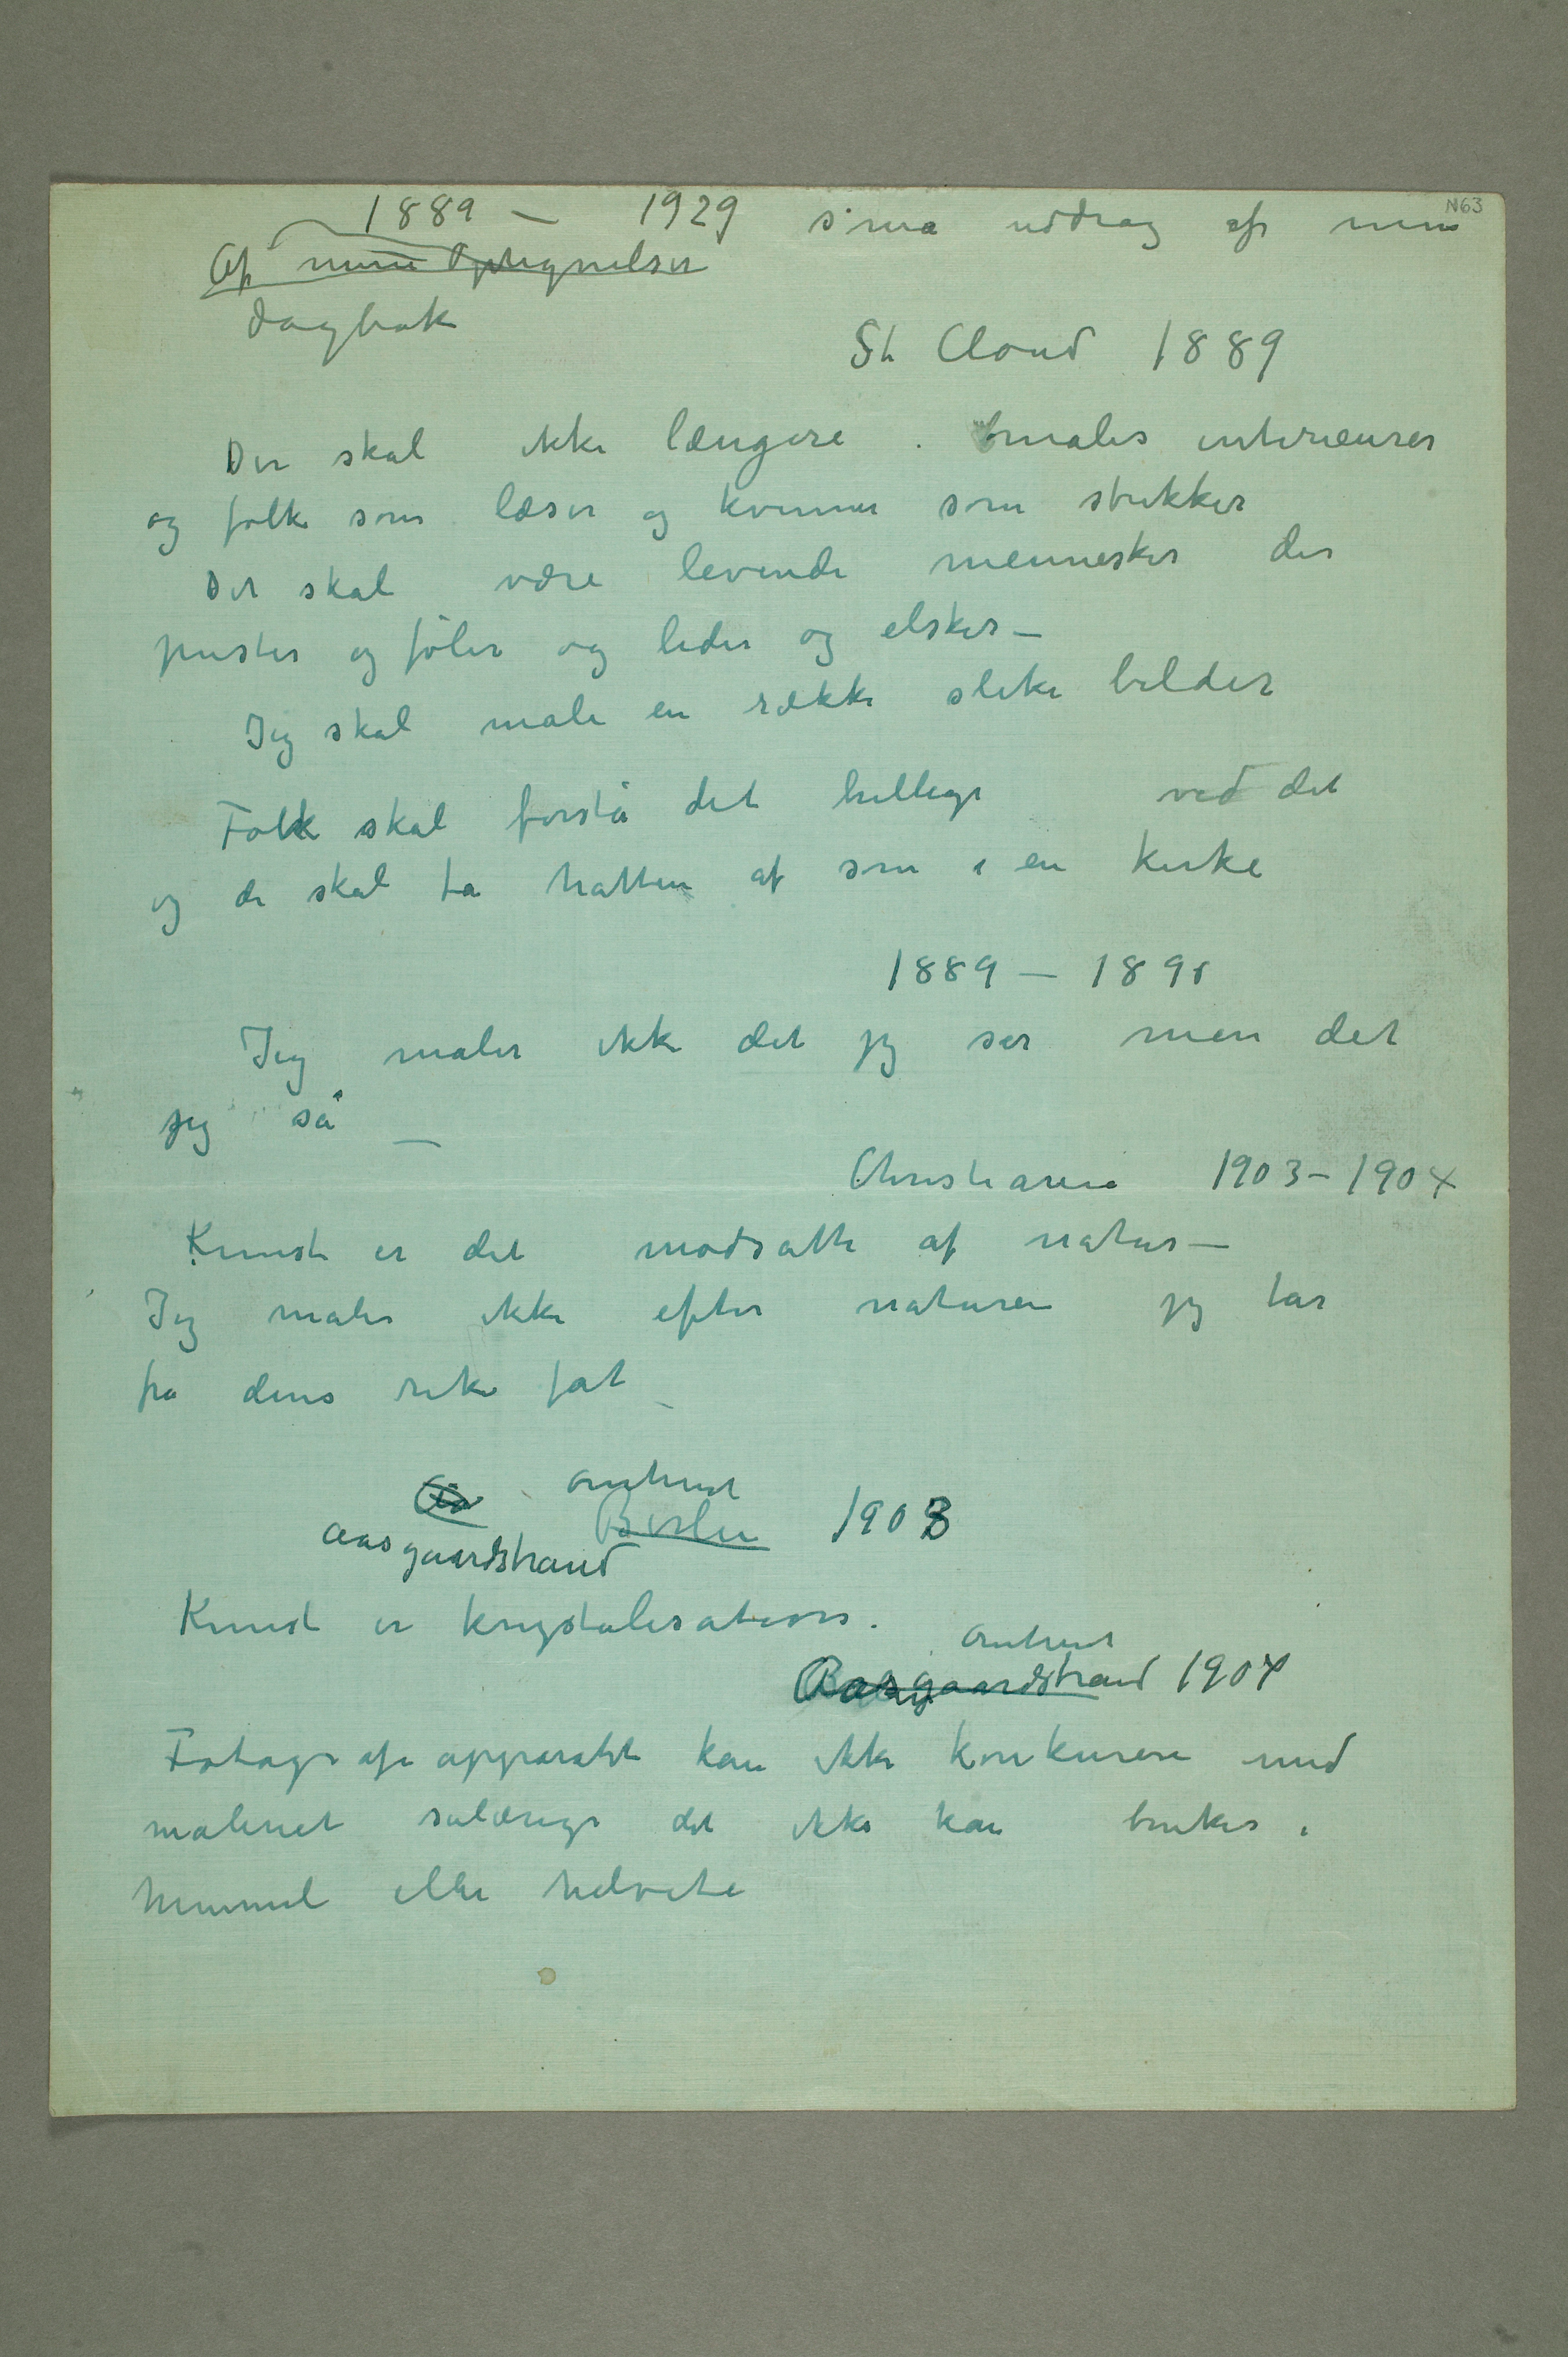 N63
1889 – 1929 små uddrag af min
Af mine Optegnelser
dagbok
St Cloud 1889
Der skal ikke længere males interieurer
og folk som læser og kvinner som strikker
Det skal være levende mennesker der
puster og føler og lider og elsker –
Jeg skal male en række slike bilder
Folk skal forstå det hellige ved det
og de skal ta hatten af som i en kirke
1889 –
Jeg maler ikke det jeg ser men det
jeg så –
Christiania 1903 – 1904
Kunst er det modsatte af natur –
Jeg maler ikke efter naturen jeg tar
fra dens rike fat –
omtrent
Aasgaardstrand Berlin 1908
Kunst er krystalisation.
omtrent
Aasgaardstrand 1904
Fotografiapparatet kan ikke konkurere med
maleriet sålænge det ikke kan brukes i
himmel eller helvete